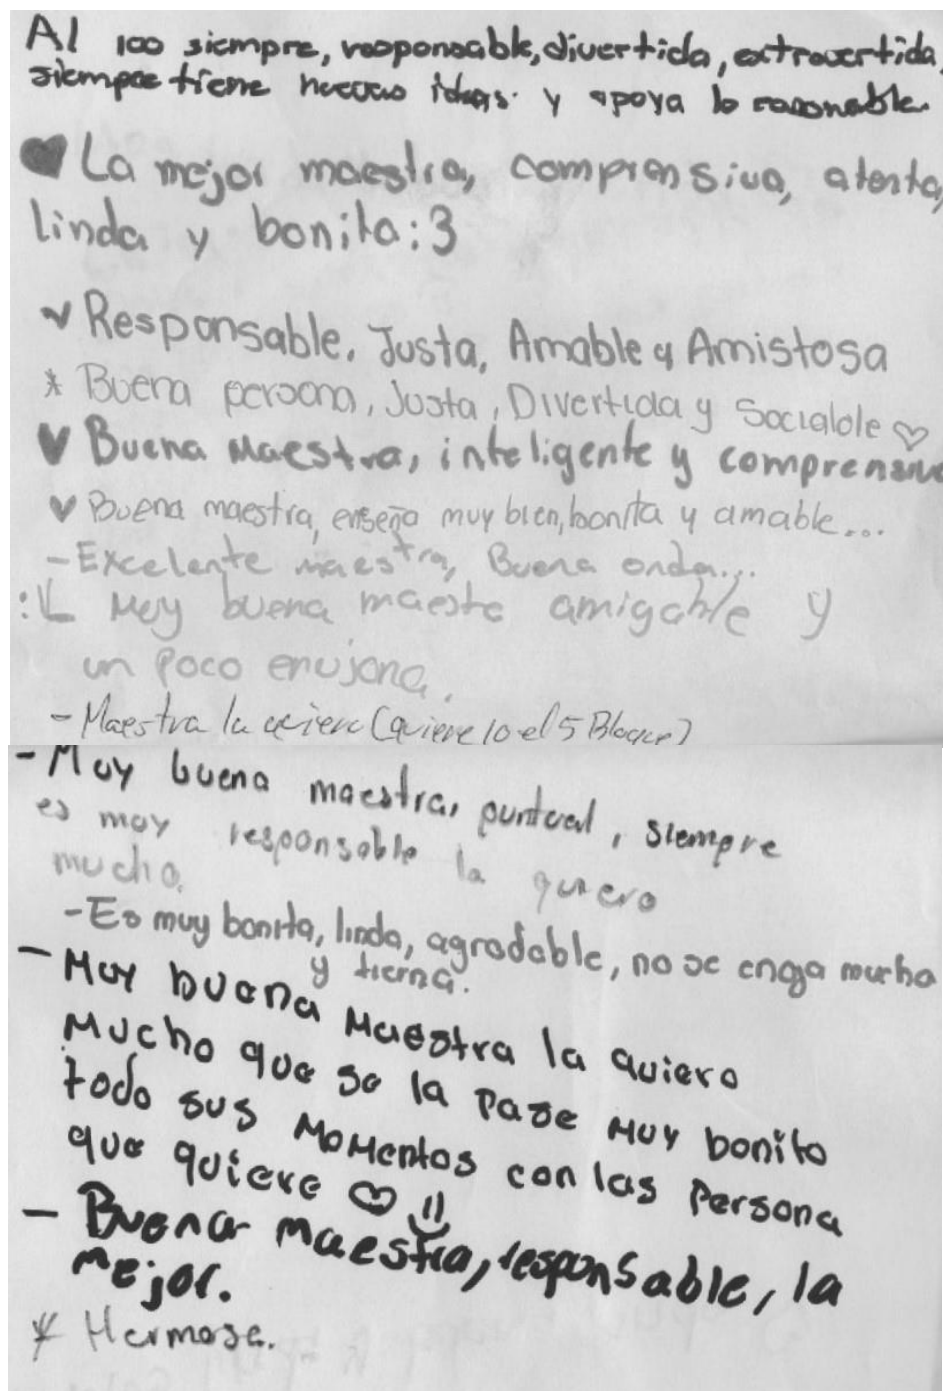 Al 100 siempre, responsable, divertida, extrovertida,
siempre tiene nuevas ideas. y apoya lo razonable.
La mejor maestra, comprensiva, atenta,
linda y bonita :3
Responsable, Justa, Amable y Amistosa
* Buena persona, Justa, Divertida y Sociable ♡
Buena Maestra, inteligente y comprensiva
Buena maestra, enseña muy bien, bonita y amable...
- Excelente maestra, Buena onda...
Muy buena maesta amigable y
un poco enujona.
- Maestra la quiero (quiere 10 el 5 Bloque)
- Muy buena maestra, puntual, siempre
es muy responsable la quiero
mucho.
- Es muy bonita, linda, agradable, no se enoja mucho
y tierna.
- Muy buena Maestra la quiero
Mucho que se la Pase Muy bonito
todo sus Momentos con las Persona
que quiere ♡
- Buena maestra, responsable, la
mejor.
* Hermosa.